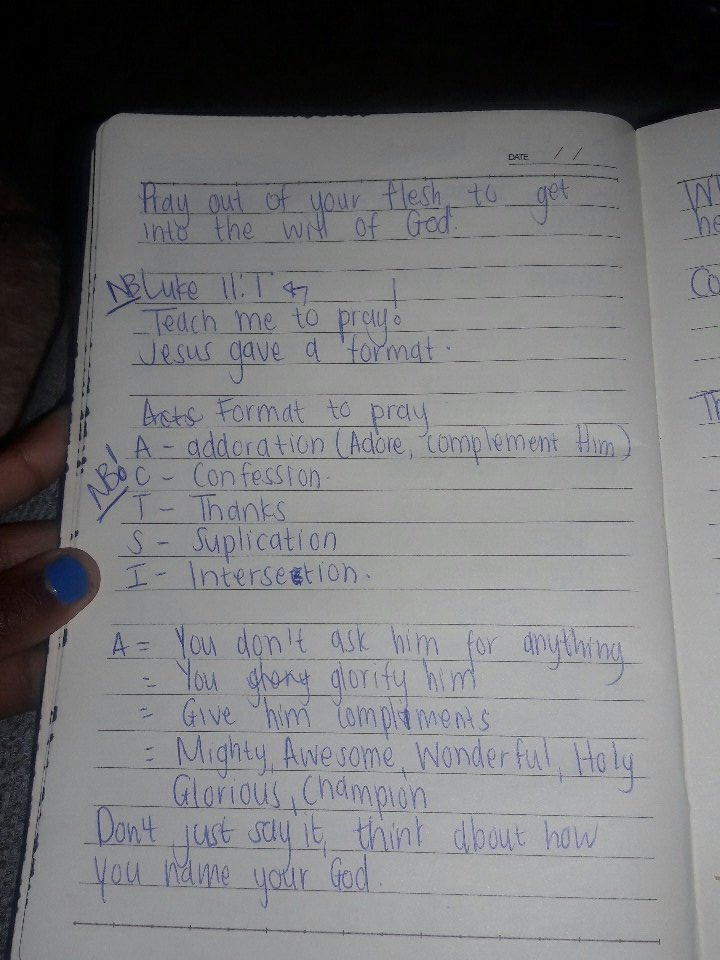 DATE / /
Pray out of your flesh, to get
into the will of God.
NB Luke 11:1
Teach me to pray!
Jesus gave a format.
Acts Format to pray
A - addoration (Adore, complement Him)
NB! C - Confession.
T - Thanks
S - Suplication
I - Intersection.
A = You don't ask him for anything
= You glorify him
= Give him compliments
= Mighty, Awesome, Wonderful, Holy
Glorious, Champion
Don't just say it, think about how
you name your God.